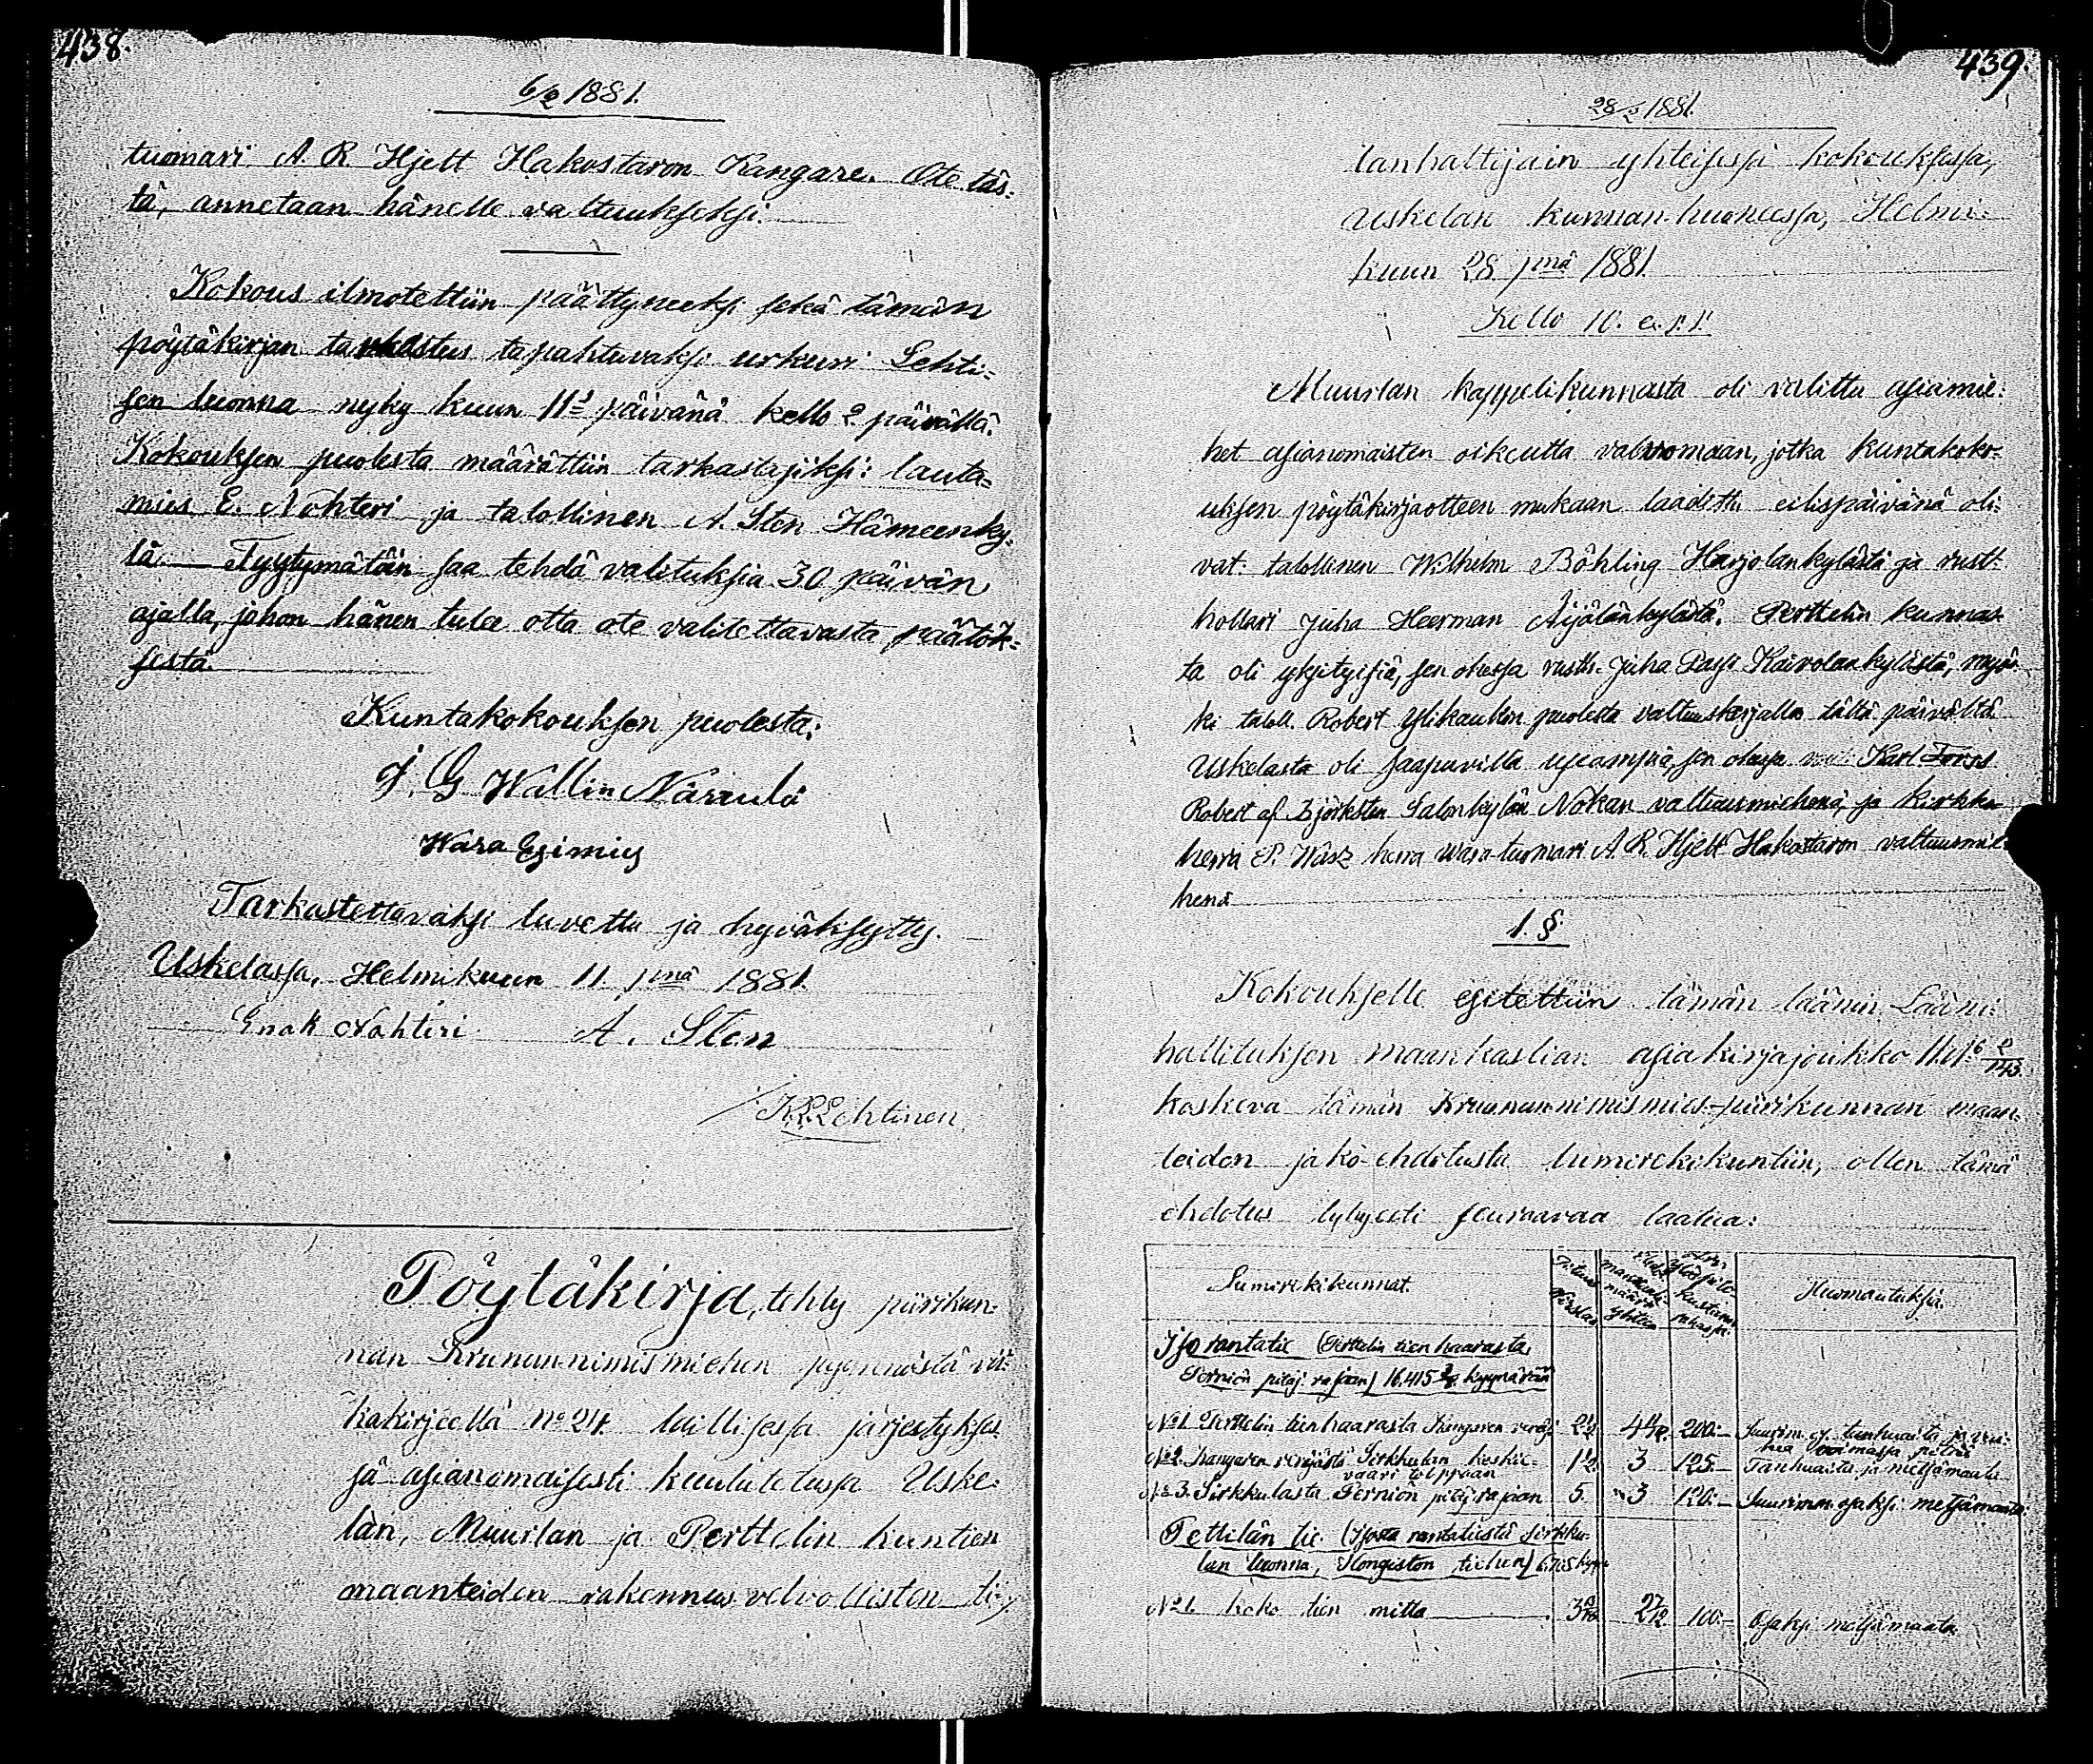 438.
6/2 1881.
tuomari A. R Hjelt Hakostaron Kangare. Ote täs-
tä, annetaan hänelle valtuukseksi.
Kokous ilmotettiin päättyneeksi sekä tämän
pöytäkirjan tarkastus tapahtuvaksi urkuri Lehti-
sen luonna nyky kuun 11s päivänä kello 2 päivällä.
Kokouksen puolesta määrättiin tarkastajiksi: lauta-
mies E. Nohteri ja talollinen A. Sten Hämeenky-
lä. — Tyytymätöin saa tehdä valituksia 30 päivän
ajalla, johon hänen tulee otta ote valitettavasta päätök-
sestä.
Kuntakokouksen puolesta:
J. G Wallin Näraulä
Wara Esimies
Tarkastettavaksi luvettu ja hyväksytty.
Uskelassa, Helmikuun 11 pnä 1881.
Enok Nohteri A. Sten
K.E. Lehtinen
Pöytäkirja, tehty piirikun-
nan Krunun nimismiehen pyynnöstä vir-
kakirjeellä No 24. laillisessa järjestykses-
sä asianomaisesti kuulutetussa Uske-
lan, Muurlan ja Perttelin kuntien
maanteiden rakennus velvollisten ti-
439.
28/2 1881.
lanhaltijain yhteisessä kokouksessa,
Uskelan kunnan huoneessa, Helmi-
kuun 28 pnä 1881.
Kello 10. e. p. p.
Muurlan kappelikunnasta oli valittu asiamie-
het asianomaisten oikeutta valvomaan, jotka kuntakoko-
uksen pöytäkirjaotteen mukaan laadittu eilispäivänä oli-
vat: talollinen Wilhelm Böhling Harjolankylästä ja rust-
hollari Juha Heerman Äijälänkylästä. Perttelin kunnas-
ta oli yksityisiä, sen ohessa rusth. Juha Passi Kaivolankylästä, myös-
ki taloll. Robert Ylikaulin puolesta valtuuskirjalla tältä päivältä.
Uskelasta oli saapuvilla useampia, sen ohessa Karl
Robert af Björksten Salonkylän Nokan valtuusmiehenä, ja kirkko-
herra P. Wäsz herra Wara-tuomari A. R. Hjelt Hakostaron valtuusmie-
henä
1. §
Kokoukselle esitettiin tämän läänin Lääni-
hallituksen maankaslian asiakirjajoukko
koskeva tämän Kruunun nimismies-piirikunnan maan-
teiden jako-ehditusta lumirekikuntiin, ollen tämä
ehdotus lyhyesti seuraavaa laatua:
Lumirekikunnat. Pituus Virstaa manttali määrä yhteen ylöspito kustann. rahassa Huomautuksia.
Iso rantatie (Perttelin tien haarasta,
Pernion pitäj. rajaan) 16,415 kyynärää
No 1. Perttelin tienhaarasta Kangaren veräj. 200.-
No 2. Kangaren veräjästä Sirkkulan keskie- 1½ 3 125.- Tanhuaita ja metsämaata
vääri tolppaan
No 3. Sirkkulasta Pernion pitäj. rajaan 5. 3 120.- Suurimm. osaksi metsämaata
Pettilän tie. (Isosta rantatiestä Sirkku-
lan luonna, Hongiston tiehen)
No 1. koko tien mitta 100.- Osaksi metsämaata